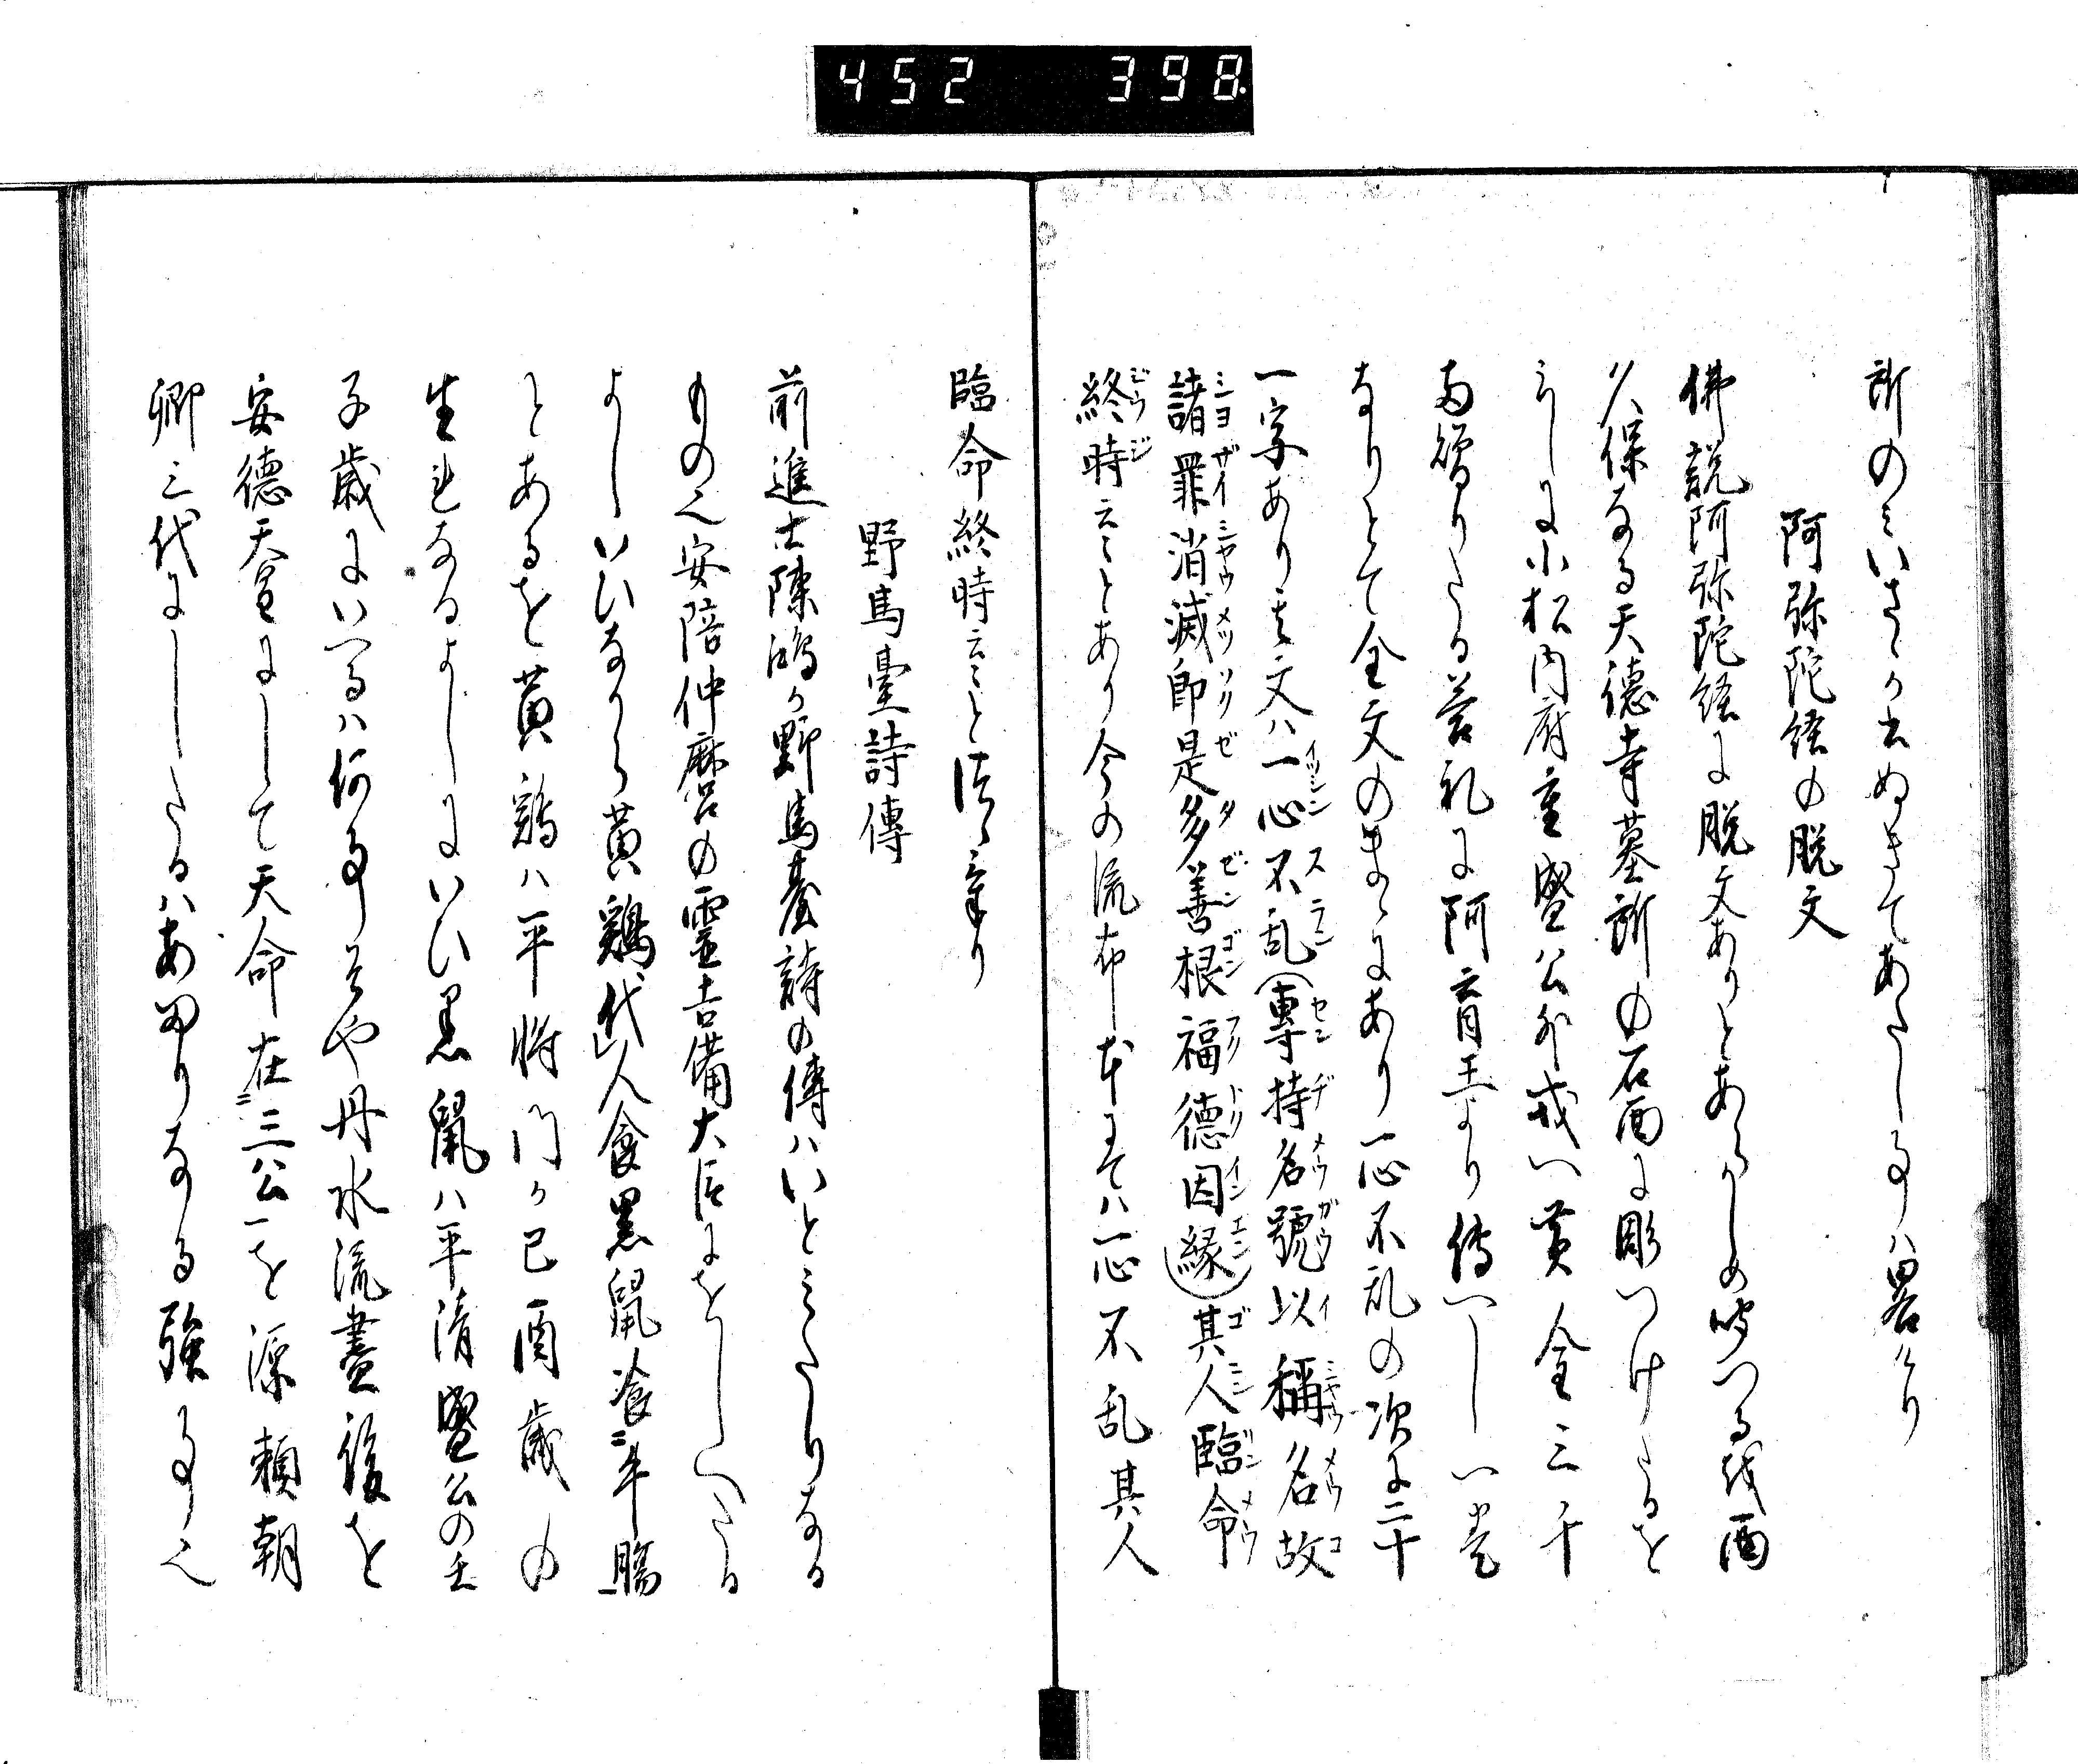 452 398
所のミいさゝか出ぬきてあたし事ハ畧けり
阿弥陀経の脱文
佛説阿弥陀経に脱文ありとあらかしめ咲つる我酉
久保なる天徳寺墓所の石面に彫つけたるを
うしに小松内府重盛公外戎へ黄金三千
両贈りたる答礼に阿育王より傳へし一巻
なりとて全文のまゝにあり一心不乱の次に二十
一字あり其文ハ一心不乱(專持名號以稱名故
諸罪消滅即是多善根福德因縁)其人臨命
終時云々とあり今の流布本にてハ一心不乱其人
臨命終時云々と
野馬臺詩傳
前進士陳鴻か野馬臺詩の傳ハいとミたりなる
もの也安陪仲麿の靈吉備大臣にをしへたる
よしいひなから黄鷄代人食黒鼠飡牛膓
とあるを黄鷄ハ平将門か己酉歳の
生れなるよしにいひ黒鼠ハ平清盛公の壬
子歳にいへるハ何事そや丹水流盡後を
安德天皇にして天命在三公を源頼朝
卿三代にしたるハあまりなる強事也